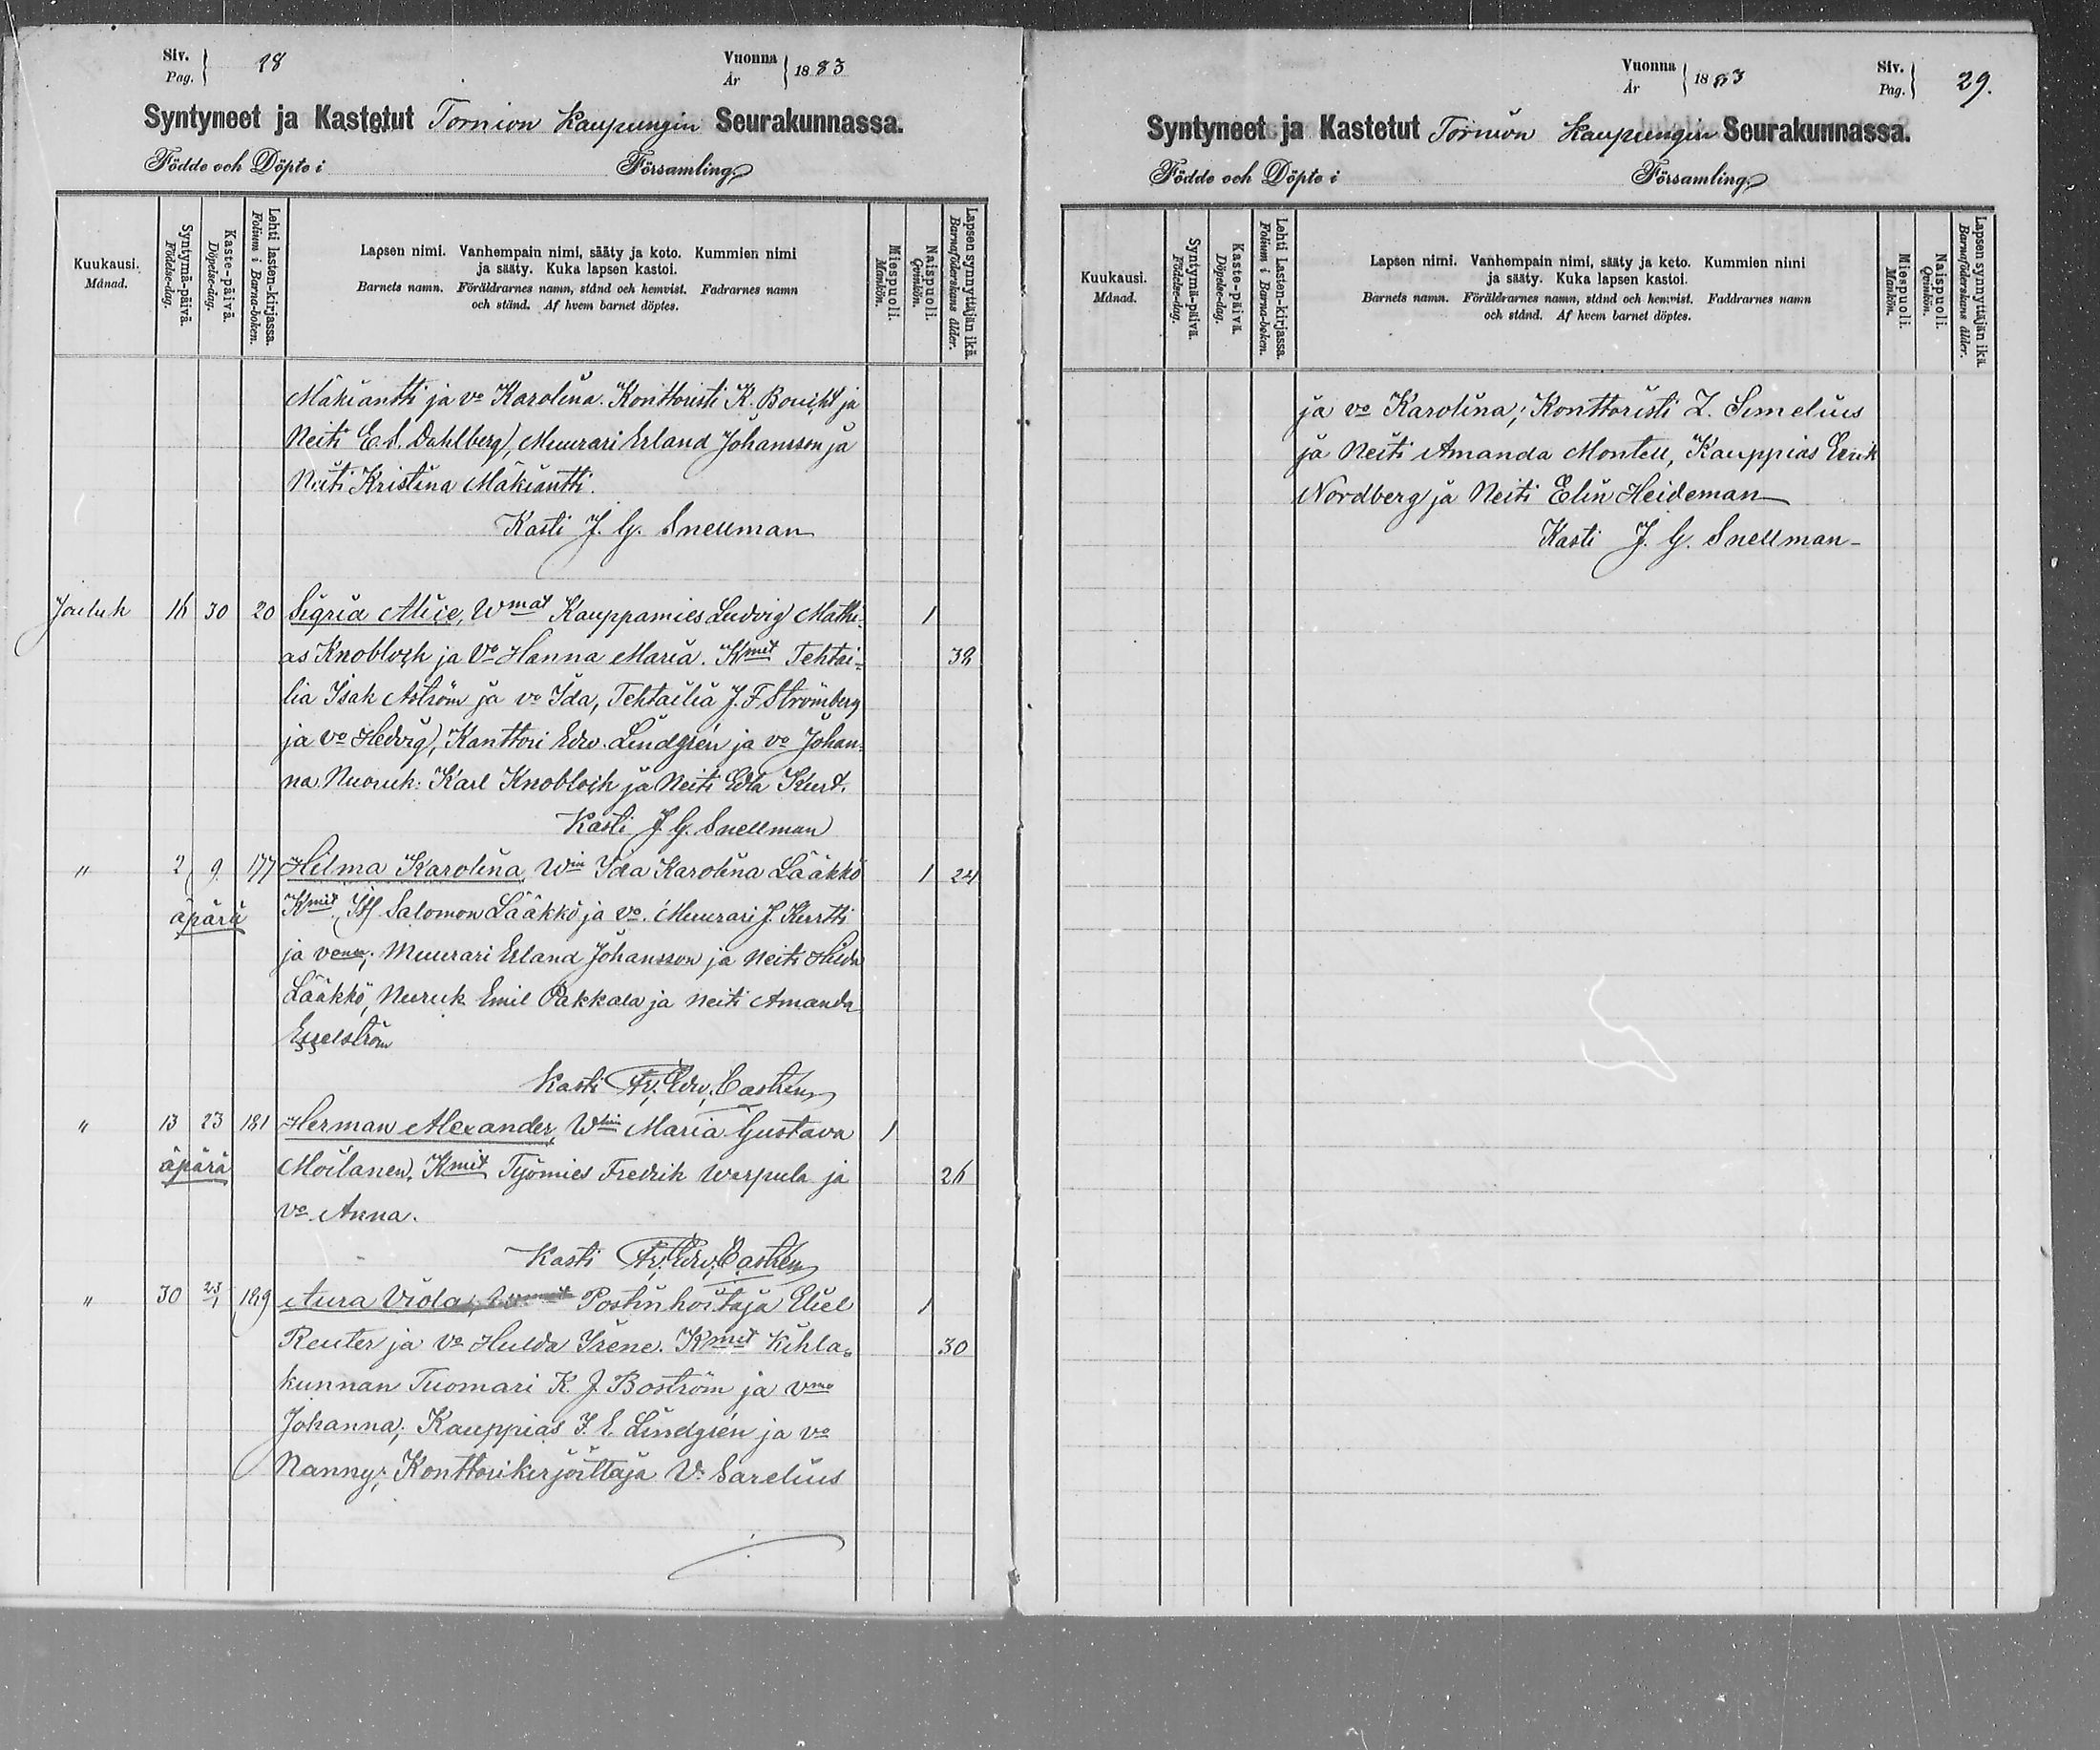 Siv. Pag. 28
Vuonna År 1883
Syntyneet ja Kastetut Tornion Kaupungin Seurakunnassa.
Födde och Döpte i Församling
Kuukausi. Månad.
Syntymä-päivä. Födelse-dag.
Kaste-päivä. Döpelse-dag.
Lehti lasten-kirjassa. Folium i Barna-boken.
Lapsen nimi. Vanhempain nimi, sääty ja koto. Kummien nimi
ja sääty. Kuka lapsen kastoi.
Barnets namn. Föräldrarnes namn, stånd och hemvist. Fadrarnes namn
och stånd. Af hvem barnet döptes.
Miespuoli. Mankön.
Naispuoli. Qvinkön.
Lapsen synnyttäjän ikä. Barnaföderskans ålder.
Mäkiantti ja vo Karolina. Konttoristi K. Boucht ja
Neiti E. S. Dahlberg, Muurari Erland Johansson ja
Neiti Kristina Mäkiantti.
Kasti J. G. Snellman
Jouluk 16 30 20 Sigrid Alice, Wmat Kauppamies Ludvig Mathi- 1
as Knobloch ja Vo Hanna Maria. Kmit Tehtai- 38
lia Isak Aström ja vo Ida, Tehtailia J. F. Strömberg
ja vo Hedvig, Kanttori Edw. Lindgrén ja vo Johan-
na Nuoruk: Karl Knobloch ja Neiti Edla Kurt.
Kasti J. G. Snellman
" 2 9 177 Hilma Karolina Win Ida Karolina Lääkkö 1 24
äpärä Kmit Itf Salomon Lääkkö ja vo. Muurari J. Kurtti
ja vonsa; Muurari Erland Johansson ja Neiti Hilda
Lääkkö, Nuruk Emil Pakkala ja neiti Amanda
Engelström
Kasti Fr. Edv. Castrén
" 13 23 181 Herman Alexander, Wtin Maria Gustava 1
äpärä Moilanen. Kmit Työmies Fredrik Warpula ja 26
vo Anna.
Kasti Fr. Edv. Castrén
" 30 23/1 189 Aura Viola, Postinhoitaja Eliel 1
Reuter ja vo Hulda Irene. Kmit Kihla- 30
kunnan Tuomari K. J. Boström ja vmo
Johanna; Kauppias J. E. Lindgrén ja vo
Nanny; Konttorikirjoittaja V. Sarelius
Vuonna År 1883
Siv. Pag. 29.
Syntyneet ja Kastetut Tornion Kaupungin Seurakunnassa.
Födde och Döpte i Församling.
Kuukausi. Månad.
Syntymä-päivä. Födelse-dag.
Kaste-päivä. Döpelse-dag.
Lehti Lasten-kirjassa. Folium i Barna-boken.
Lapsen nimi. Vanhempain nimi, sääty ja koto. Kummien nimi
ja sääty. Kuka lapsen kastoi.
Barnets namn. Föräldrarnes namn, stånd och hemvist. Faddrarnes namn
och stånd. Af hvem barnet döptes.
Miespuoli. Mankön.
Naispuoli. Qvinkön.
Lapsen synnyttäjän ikä. Barnaföderskans ålder.
ja vo Karolina; Konttoristi Z. Simelius
ja Neiti Amanda Montell, Kauppias Erik
Nordberg ja Neiti Elin Heideman
Kasti J. G. Snellman